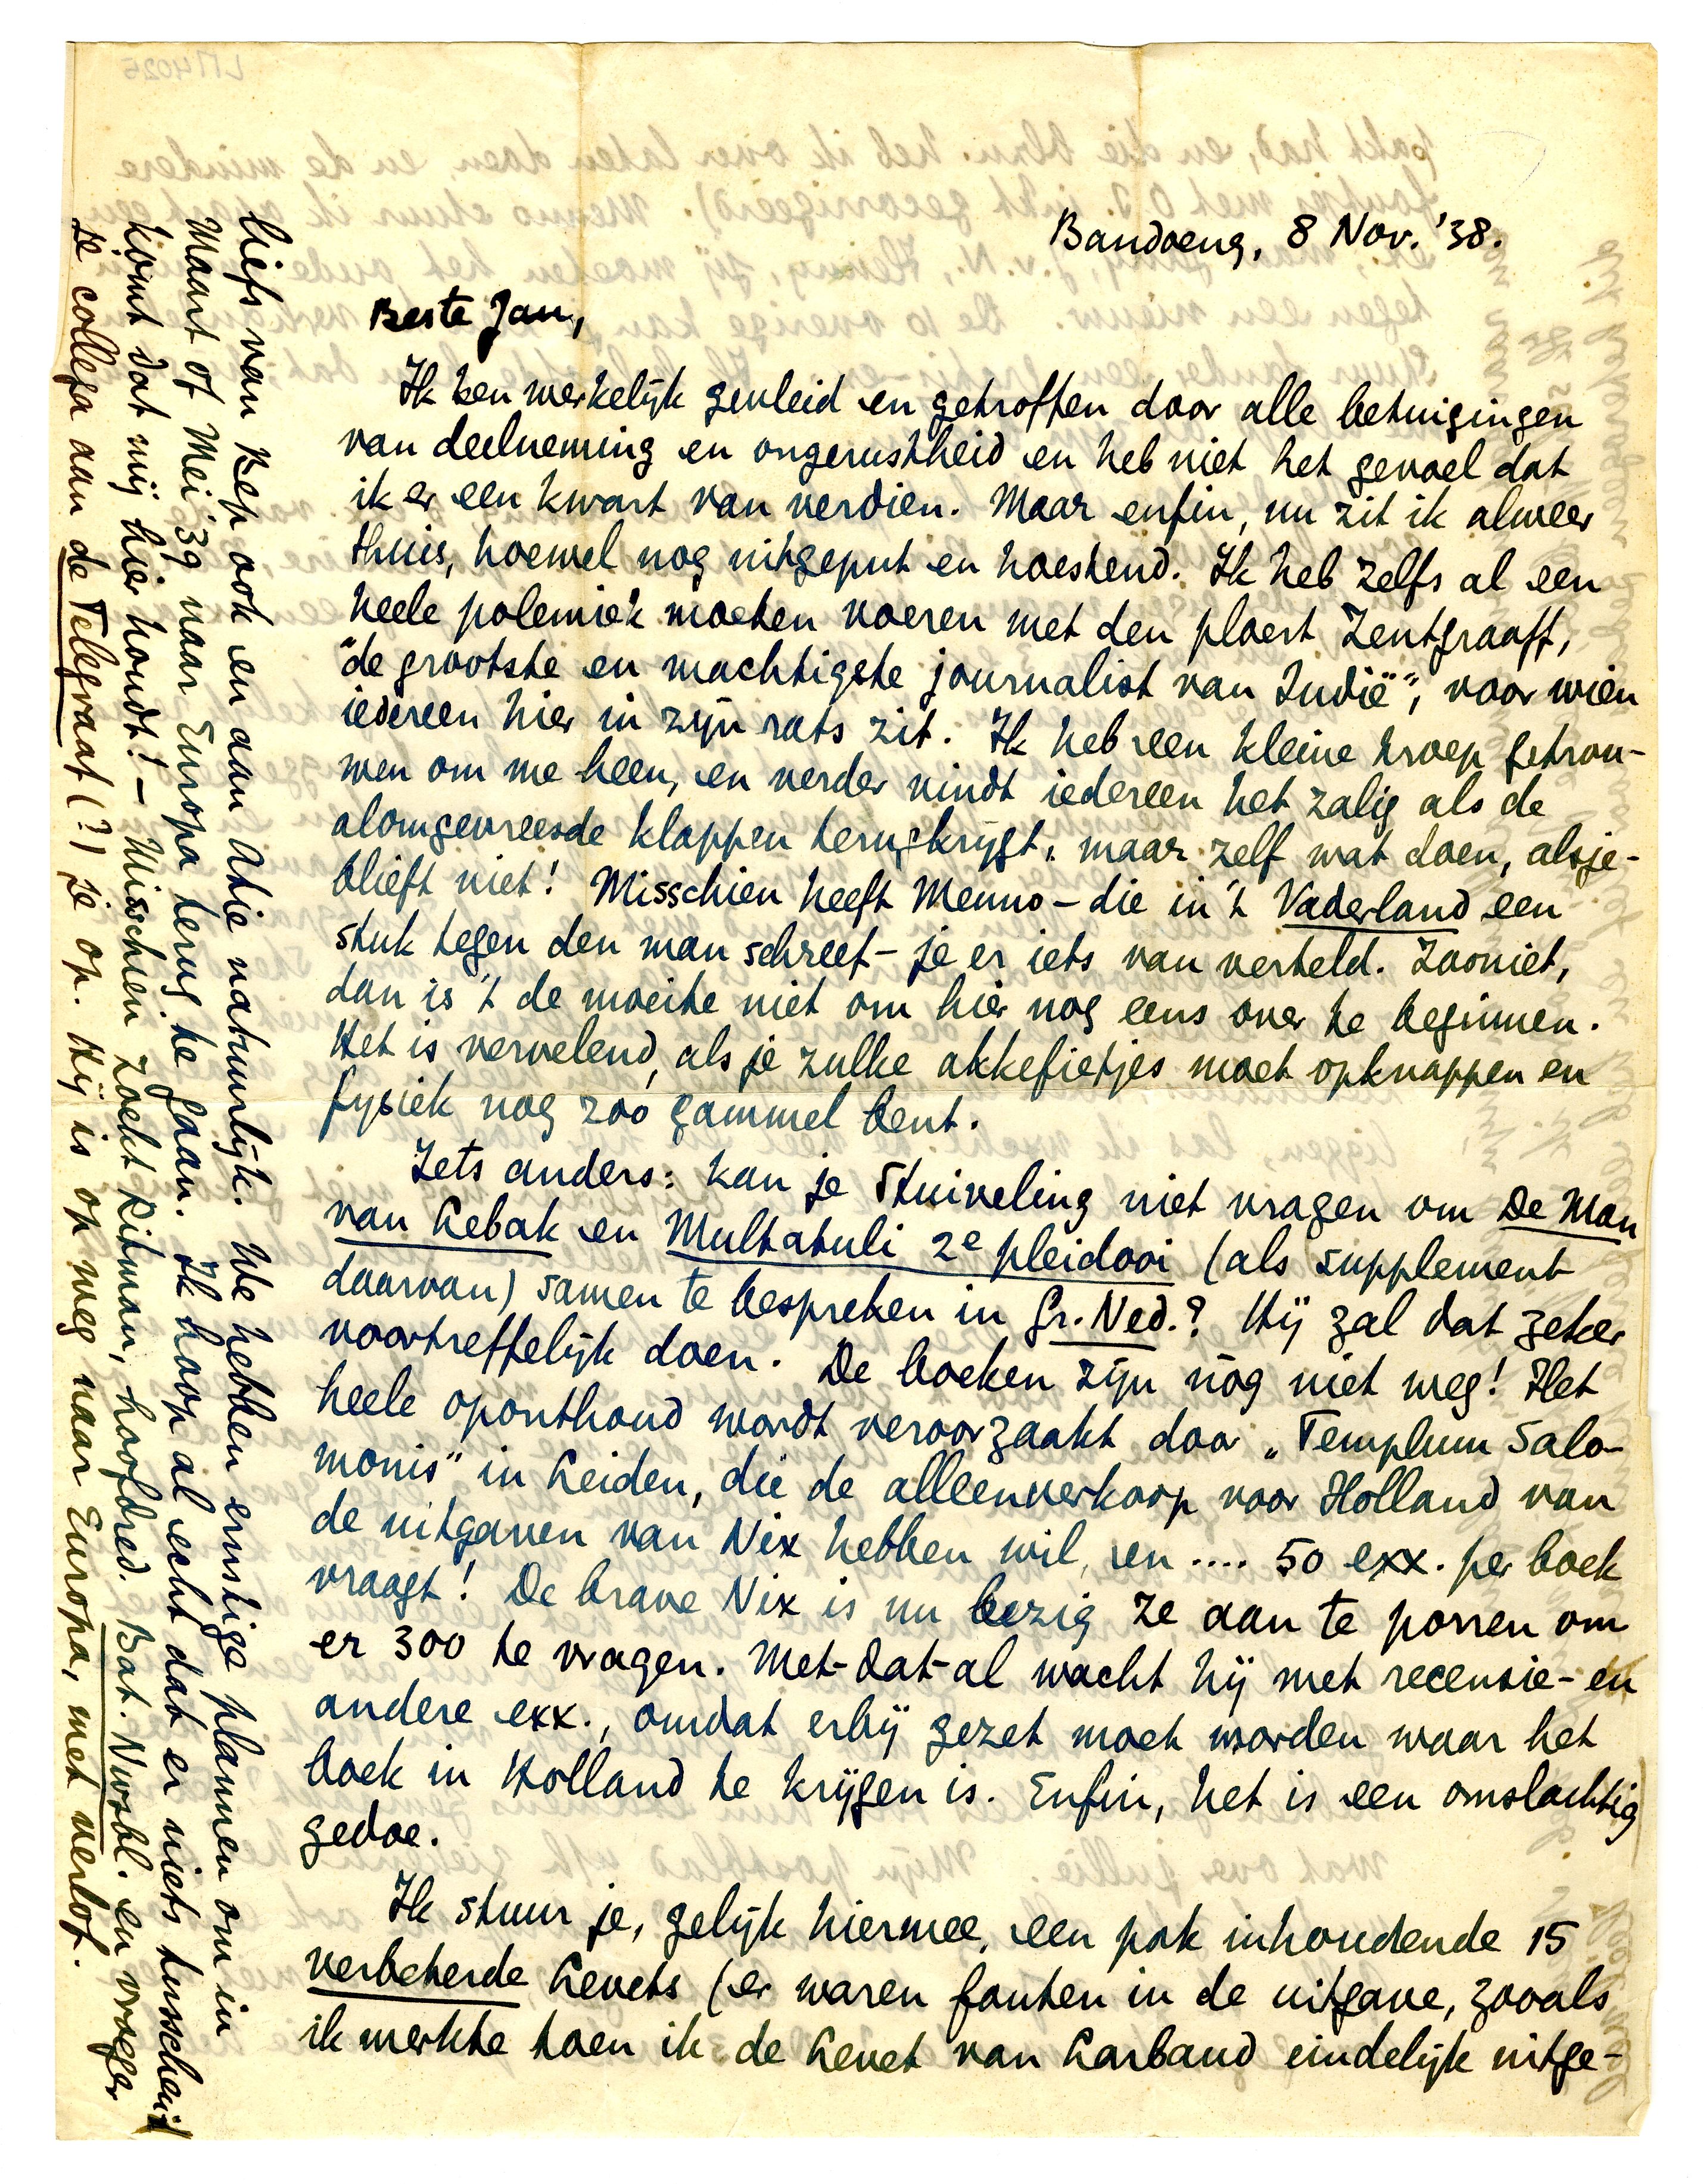 Bandoeng, 8 Nov. '38.
Beste Jan,
Ik ben werkelijk gevleid en getroffen door alle betuigingen
van deelneming en ongerustheid en heb niet het gevoel dat
ik er een kwart van verdien. Maar enfin, nu zit ik alweer
thuis, hoewel nog uitgeput en hoestend. Ik heb zelfs al een
heele polemiek moeten voeren met den ploert Zentgraaff,
"de grootste en machtigste journalist van Indië", voor wien
iedereen hier in zijn rats zit. Ik heb een kleine troep getrou-
wen om me heen, en verder vindt iedereen het zalig als de
alomgevreesde klappen terugkrijgt, maar zelf wat doen, alsje-
blieft niet! Misschien heeft Menno – die in 't Vaderland een
stuk tegen den man schreef – je er iets van verteld. Zooniet,
dan is 't de moeite niet om hier nog eens over te beginnen.
Het is vervelend, als je zulke akkefietjes moet opknappen en
fysiek nog zoo gammel bent.
Iets anders: kan je Stuiveling niet vragen om De Man
van Lebak en Multatuli 2e pleidooi (als supplement
daarvan) samen te bespreken in Gr. Ned.? Hij zal dat zeker
voortreffelijk doen. De boeken zijn nòg niet weg! Het
heele oponthoud wordt veroorzaakt door „Templum Salo-
monis" in Leiden, die de alleenverkoop voor Holland van
de uitgaven van Nix hebben wil, en .... 50 exx. per boek
vraagt! De brave Nix is nu bezig ze aan te porren om
er 300 te vragen. Met-dat-al wacht hij met recensie- en
andere exx., omdat erbij gezet moet worden waar het
boek in Holland te krijgen is. Enfin, het is een omslachtig
gedoe.
Ik stuur je, gelijk hiermee, een pak inhoudende 15
verbeterde Levets (er waren fouten in de uitgave, zooals
ik merkte toen ik de Levet van Larbaud eindelijk uitge-
liefs van Bep ook en aan Atie natuurlijk. We hebben ernstige plannen om in
Maart of Mei '39 naar Europa terug te gaan. Ik hoop al echt dat er niets tusschen
komt dat mij hier houdt! – Misschien zoekt Ritman, hoofdred. Bat. Nwsbl. en vroeger
je collega aan de Telegraaf (?) je op. Hij is op weg naar Europa, met verlof.
LM4025